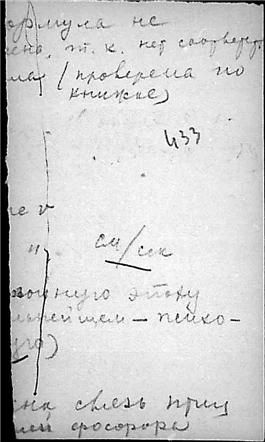 ормула не
ено, т.к. нет соответст
ма (проверена по
книжке)
433
ие v
"
см/сек
военную эпоху
льнейшем – психо-
уго)
на связь приц
лей фосфора